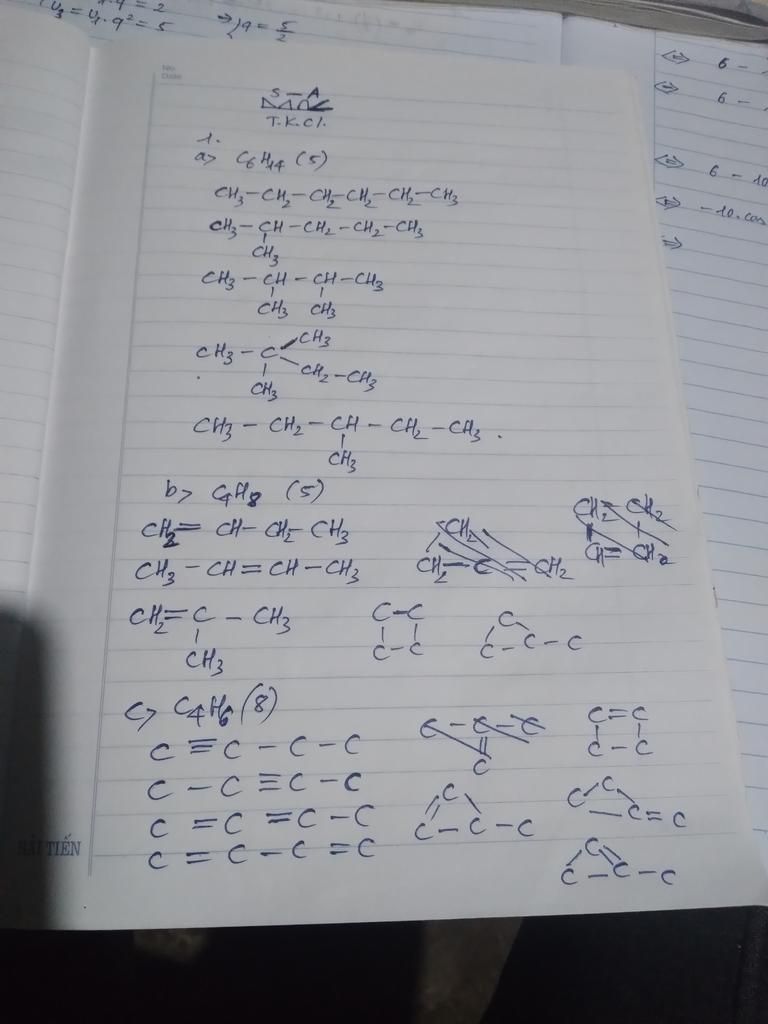 u₃ = u₁.q² = 5 ⇒ {q = 5/2
⇔ 6 -
⇔ 6 -
⇔ 6 - 10
⇔ -10.cos
⇒
No:
Date:
S - A
T.K.Cl.
1.
a> C₆H₁₄ (5)
CH₃-CH₂-CH₂-CH₂-CH₂-CH₃
CH₃-CH-CH₂-CH₂-CH₃
CH₃
CH₃-CH-CH-CH₃
CH₃ CH₃
CH₃
CH₃-C
CH₂-CH₃
CH₃
CH₃-CH₂-CH-CH₂-CH₃.
CH₃
b> C₄H₈ (5)
CH₂=CH-CH₂-CH₃
CH₃-CH=CH-CH₃
CH₂
CH₂-C=CH₂
CH₂=CH₂
CH=CH₂
CH₂=C-CH₃
CH₃
C-C
C-C
C
C-C-C
c> C₄H₆ (8)
C≡C-C-C
C-C≡C-C
C=C=C-C
C=C-C=C
C-C-C
C
C=C
C-C
C
C-C-C
C
C=C
C
C-C-C
HẢI TIẾN